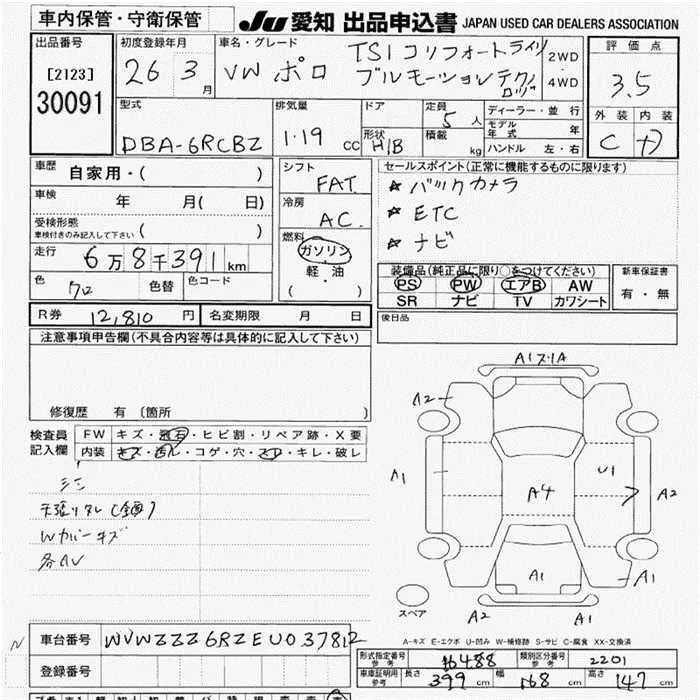 車内保管・守衛保管
JU 愛知 出品申込書 JAPAN USED CAR DEALERS ASSOCIATION
出品番号
[2123]
30091
初度登録年月
26 3 月
車名・グレード
VW ポロ
TSI コンフォートライン
ブルーモーションテクノ
ロジ
2WD
・
4WD
評価点
3.5
外装 内装
C
型式
DBA-6RCBZ
排気量
1.19 cc
ドア
形状
H/B
定員
5 人
積載
kg
ディーラー・並行
モデル
年式 年
ハンドル 左・右
車歴 自家用・( )
車検 年 月( 日)
受検形態
車検付きのみ記入して下さい ( )
走行 6万8千391 km
色 クロ 色替 色コード
シフト
FAT
冷房
AC
燃料
ガソリン
・
軽・油
( )
セールスポイント(正常に機能するものに限ります)
☆ バックカメラ
☆ ETC
☆ ナビ
装備品(純正品に限り○をつけてください)
PS PW エアB AW
SR ナビ TV カワシート
新車保証書
有・無
後日品
R券 12,810 円 名変期限 月 日
注意事項申告欄(不具合内容等は具体的に記入して下さい)
修復歴 有 〔箇所 〕
検査員
記入欄
FW キズ・飛石・ヒビ割・リペア跡・X要
内装 キズ・汚レ・コゲ・穴・スレ・キレ・破レ
シミ
天張リタレ(全面)
Wカバーキズ
各AU
A1スリA
A2
A1
U1
A4
A2
A1
A1
A2
A1
スペア
A-キズ E-エクボ U-凹み W-補修跡 S-サビ C-腐食 XX-交換済
N
車台番号 WVWZZZ6RZEU037812
登録番号
形式指定番号
参考
16488
類別区分番号
参考
2201
車庫証明用
参考
長さ 399 cm 幅 168 cm 高さ 147 cm